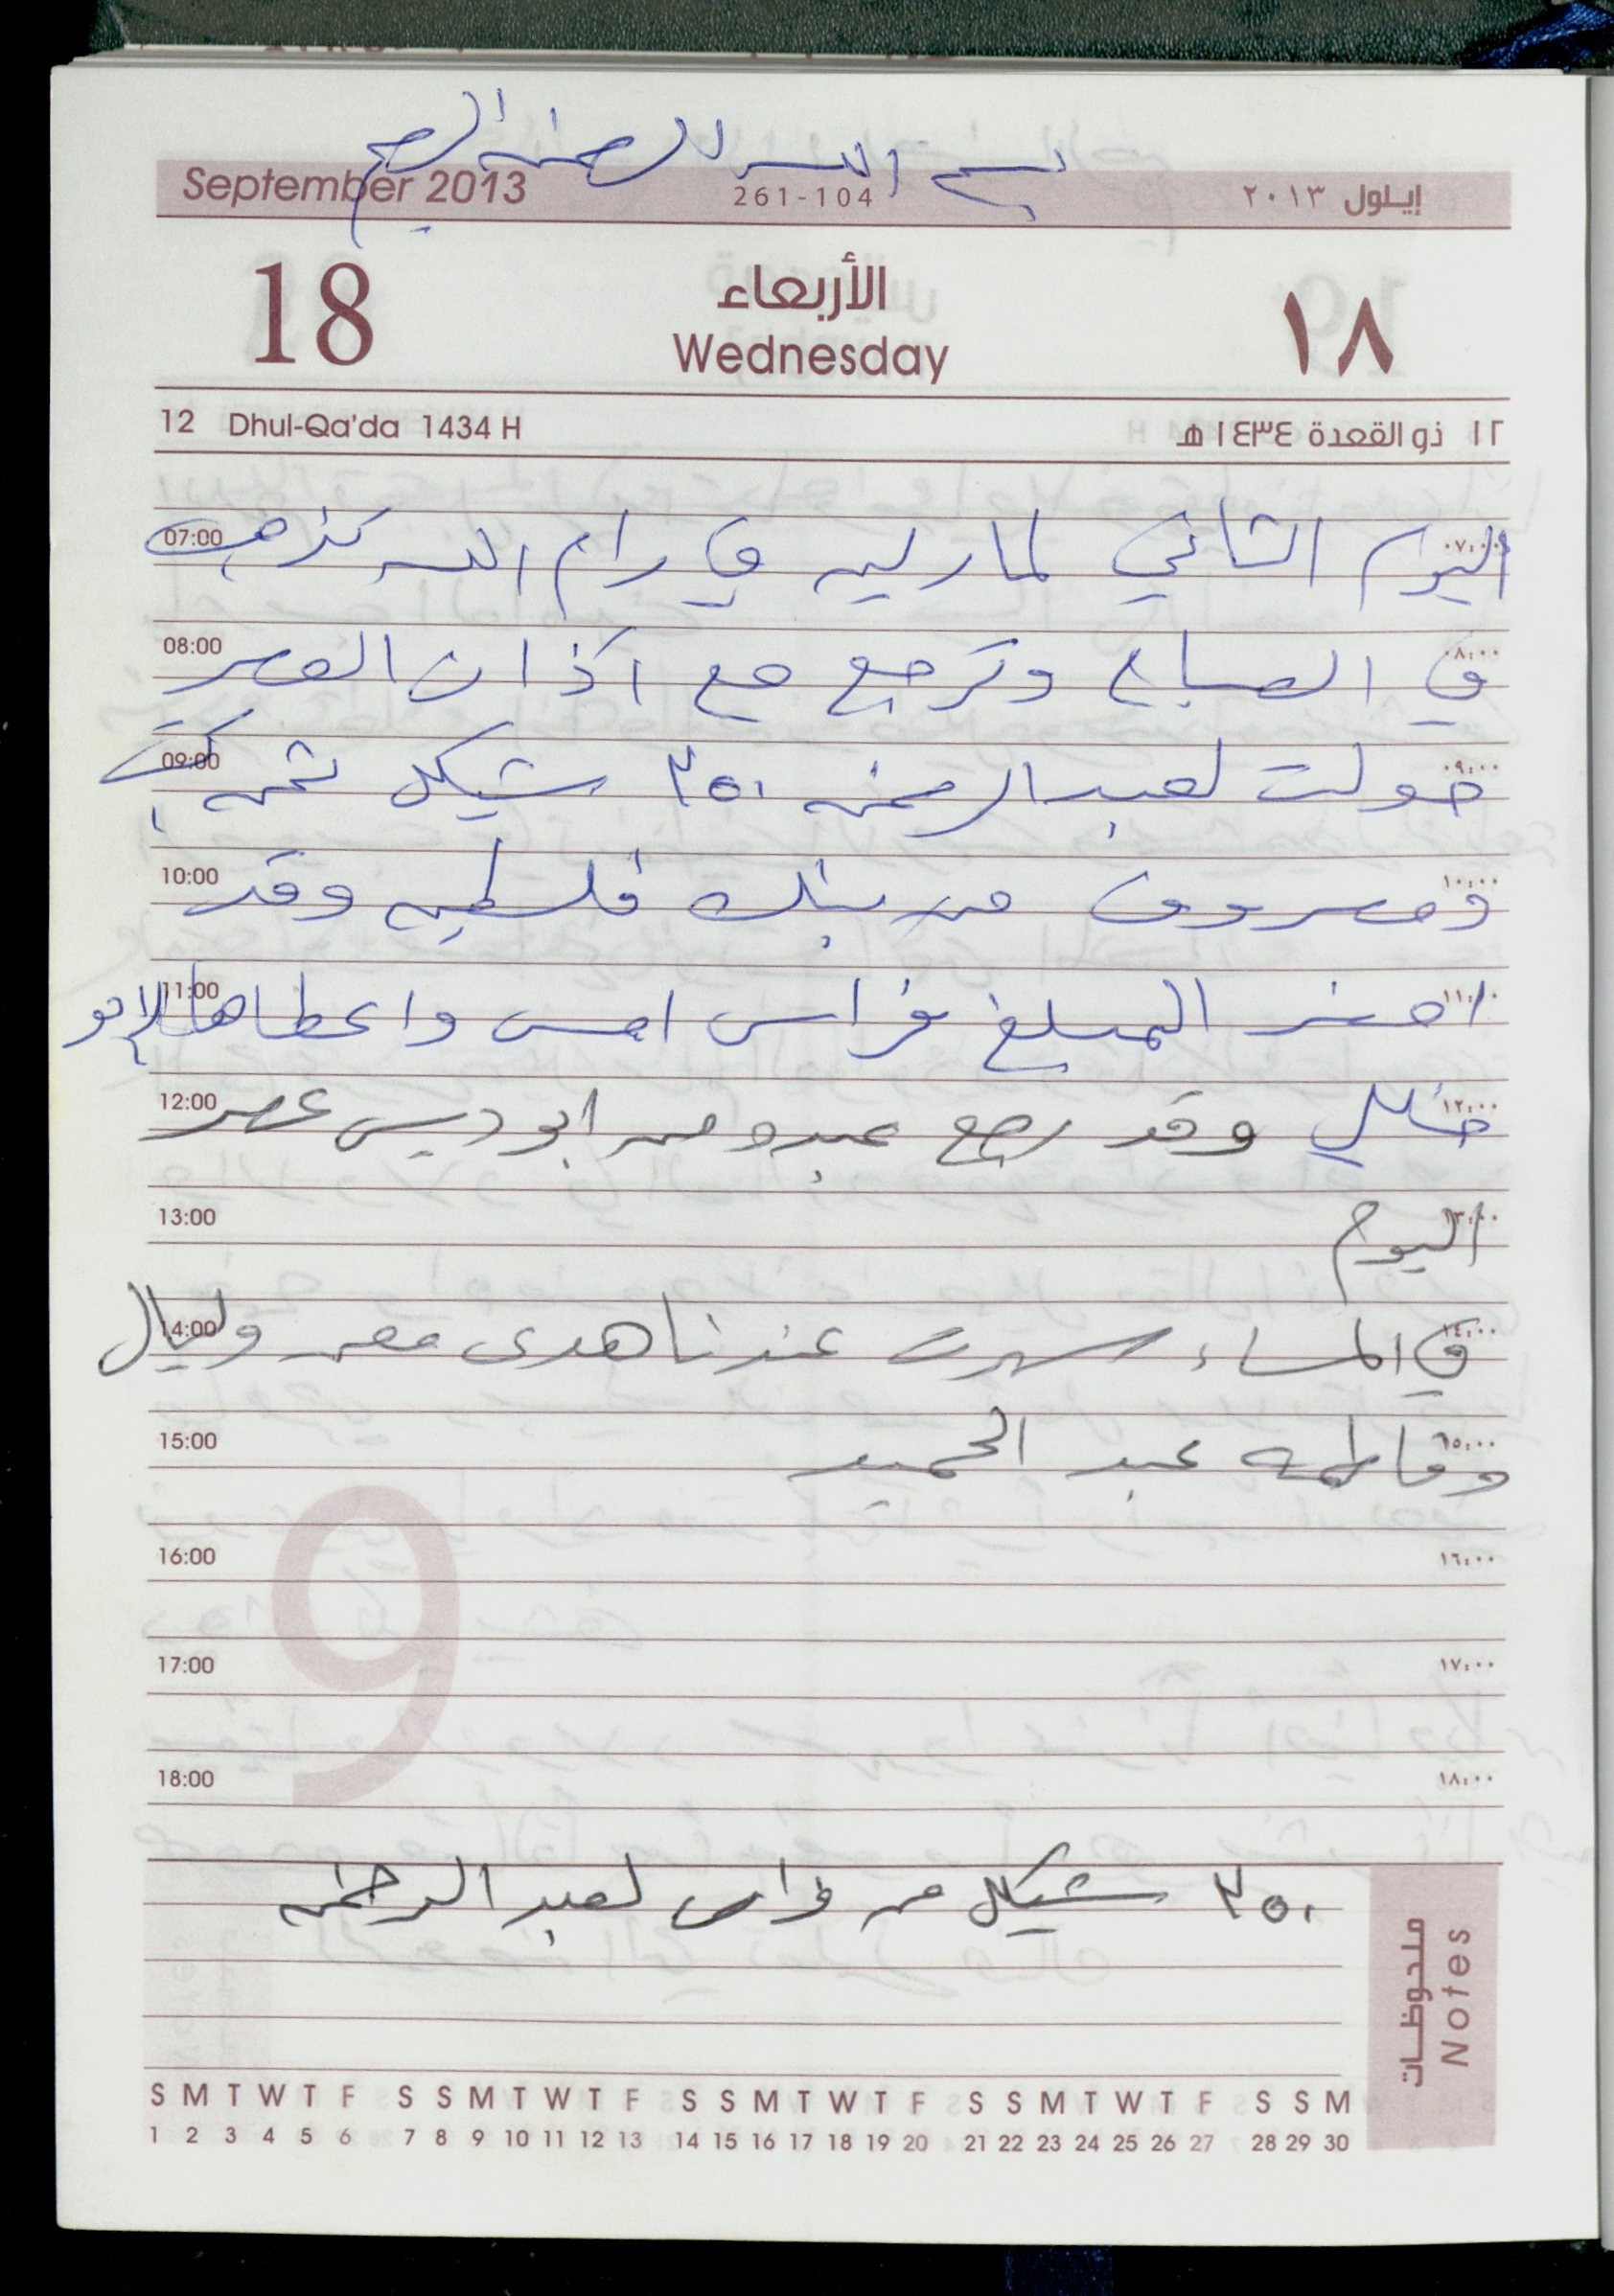 بسم الله الرحمن الرحيم
September 2013 261-104 إيلول ٢٠١٣
18 الأربعاء ١٨
Wednesday
12 Dhul-Qa'da 1434 H ١٢ ذو القعدة ١٤٣٤ هـ
07:00 اليوم الثاني لمارلين في رام الله تذهب ٠٧:٠٠
08:00 في الصباح وترجع مع اذان العصر ٠٨:٠٠
09:00 حولت لعبد الرحمن ٣٥٠ شيكل ثمن ٠٩:٠٠
10:00 ومصروف من بنك فلسطين وقد ١٠:٠٠
11:00 احضر المبلغ فراس امس واعطاها لابو ١١:٠٠
12:00 خليل وقد رجع عبد من ابوديس عصر ١٢:٠٠
13:00 اليوم ١٣:٠٠
14:00 في المساء سهرت عندنا هدى معن وليال ١٤:٠٠
15:00 وفاطمه عبد الحميد ١٥:٠٠
16:00 ١٦:٠٠
17:00 ١٧:٠٠
18:00 ١٨:٠٠
9
٣٥٠ شيكل من فراس لعبد الرحمن
ملحوظات
Notes
S M T W T F S S M T W T F S S M T W T F S S M T W T F S S M
1 2 3 4 5 6 7 8 9 10 11 12 13 14 15 16 17 18 19 20 21 22 23 24 25 26 27 28 29 30